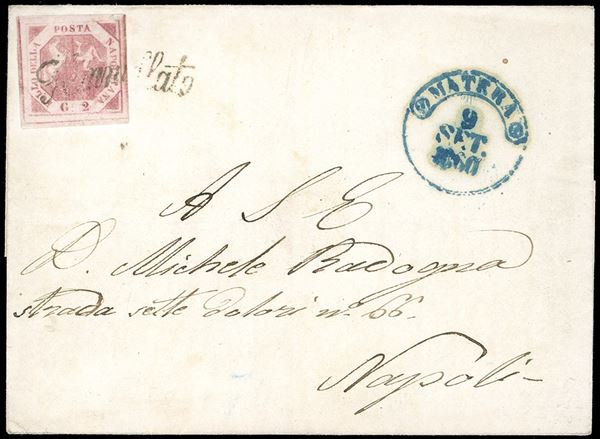 POSTA
NAPOLETANA
BOLLO DELLA
G. 2
Annullato
MATERA
9
SET.
1860
A S E
D. Michele Radogna
strada sette dolori n.º 66.
Napoli